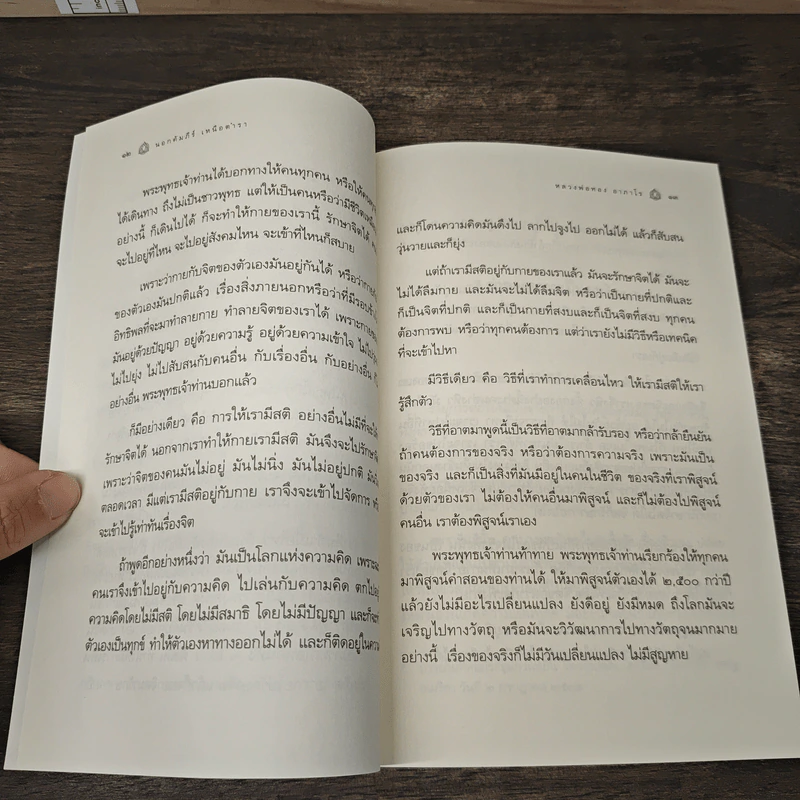 ๑๒ นอกคัมภีร์ เหนือตำรา
พระพุทธเจ้าท่านได้บอกทางให้คนทุกคน หรือให้คน
ได้เดินทาง ถึงไม่เป็นชาวพุทธ แต่ให้เป็นคนหรือว่ามีชีวิต
อย่างนี้ ก็เดินไปได้ ก็จะทำให้กายของเรานี้ รักษาจิตได้
จะไปอยู่ที่ไหน จะไปอยู่สังคมไหน จะเข้าที่ไหนก็สบาย
เพราะว่ากายกับจิตของตัวเองมันอยู่กันได้ หรือว่ากาย
ของตัวเองมันปกติแล้ว เรื่องสิ่งภายนอกหรือว่าที่มีรอบข้าง
อิทธิพลที่จะมาทำลายกาย ทำลายจิตของเราได้ เพราะกาย
มันอยู่ด้วยปัญญา อยู่ด้วยความรู้ อยู่ด้วยความเข้าใจ
ไม่ไปยุ่ง ไม่ไปสับสนกับคนอื่น กับเรื่องอื่น กับอย่างอื่น
อย่างอื่น พระพุทธเจ้าท่านบอกแล้ว
ก็มีอย่างเดียว คือ การให้เรามีสติ อย่างอื่นไม่มีที่จะ
รักษาจิตได้ นอกจากเราทำให้กายเรามีสติ มันจึงจะไปรักษา
เพราะว่าจิตของคนมันไม่อยู่ มันไม่นิ่ง มันไม่อยู่ปกติ
ตลอดเวลา มีแต่เรามีสติอยู่กับกาย เราจึงจะเข้าไปจัดการ
จะเข้าไปรู้เท่าทันเรื่องจิต
ถ้าพูดอีกอย่างหนึ่งว่า มันเป็นโลกแห่งความคิด เพราะ
คนเราจึงเข้าไปอยู่กับความคิด ไปเล่นกับความคิด
ความคิดโดยไม่มีสติ โดยไม่มีสมาธิ โดยไม่มีปัญญา
ตัวเองเป็นทุกข์ ทำให้ตัวเองหาทางออกไม่ได้ และก็ติดอยู่ใน
หลวงพ่อทอง อาภากโร ๑๓
และก็โดนความคิดมันดึงไป ลากไปจูงไป ออกไม่ได้ แล้วก็สับสน
วุ่นวายและก็ยุ่ง
แต่ถ้าเรามีสติอยู่กับกายของเราแล้ว มันจะรักษาจิตได้ มันจะ
ไม่ได้ลืมกาย และมันจะไม่ได้ลืมจิต หรือว่าเป็นกายที่ปกติและ
ก็เป็นจิตที่ปกติ และก็เป็นกายที่สงบและก็เป็นจิตที่สงบ ทุกคน
ต้องการพบ หรือว่าทุกคนต้องการ แต่ว่าเรายังไม่มีวิธีหรือเทคนิค
ที่จะเข้าไปหา
มีวิธีเดียว คือ วิธีที่เราทำการเคลื่อนไหว ให้เรามีสติให้เรา
รู้สึกตัว
วิธีที่อาตมาพูดนี้เป็นวิธีที่อาตมากล้ารับรอง หรือว่ากล้ายืนยัน
ถ้าคนต้องการของจริง หรือว่าต้องการความจริง เพราะมันเป็น
ของจริง และก็เป็นสิ่งที่มันมีอยู่ในคนในชีวิต ของจริงที่เราพิสูจน์
ด้วยตัวของเรา ไม่ต้องให้คนอื่นมาพิสูจน์ และก็ไม่ต้องไปพิสูจน์
คนอื่น เราต้องพิสูจน์เราเอง
พระพุทธเจ้าท่านท้าทาย พระพุทธเจ้าท่านเรียกร้องให้ทุกคน
มาพิสูจน์คำสอนของท่านได้ ให้มาพิสูจน์ตัวเองได้ ๒,๕๐๐ กว่าปี
แล้วยังไม่มีอะไรเปลี่ยนแปลง ยังดีอยู่ ยังมีหมด ถึงโลกมันจะ
เจริญไปทางวัตถุ หรือมันจะวิวัฒนาการไปทางวัตถุจนมากมาย
อย่างนี้ เรื่องของจริงก็ไม่มีวันเปลี่ยนแปลง ไม่มีสูญหาย